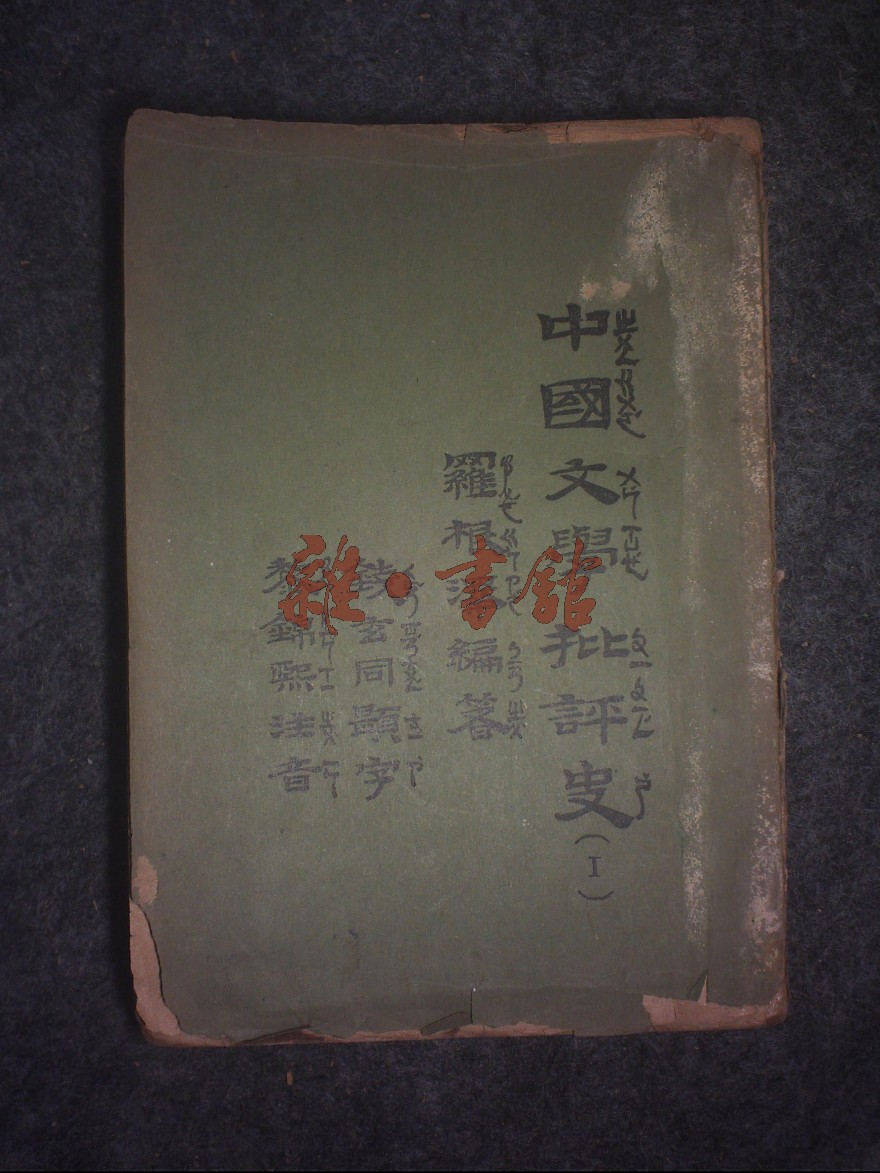 中國文學批評史(I)
ㄓㄨㄥ ㄍㄨㄛ ㄨㄣ ㄒㄩㄝ ㄆㄧ ㄆㄧㄥ ㄕ
羅根澤編著
錢玄同題字
黎錦熙注音
雜·書館